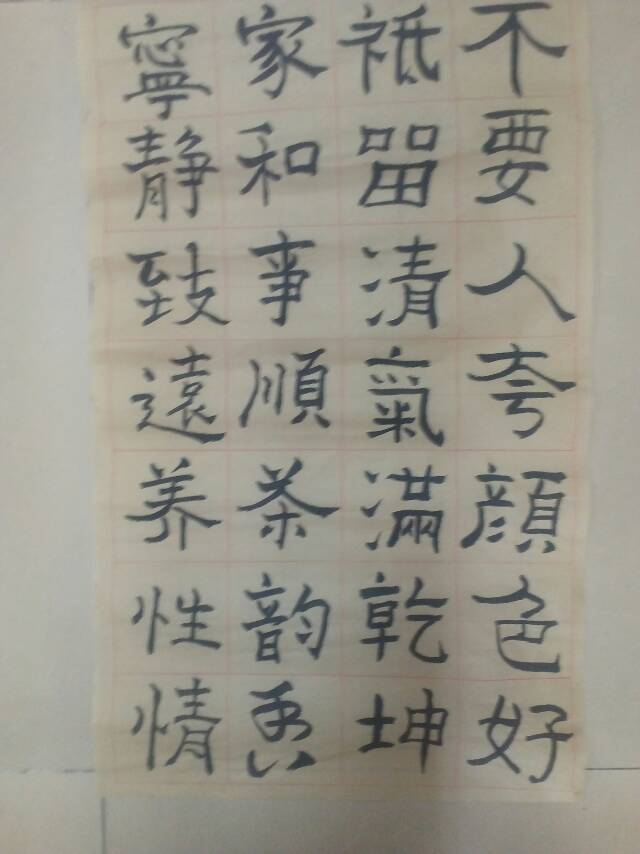 不要人夸顔色好
祗留清氣滿乾坤
家和事順茶韵
寧静致遠养性情